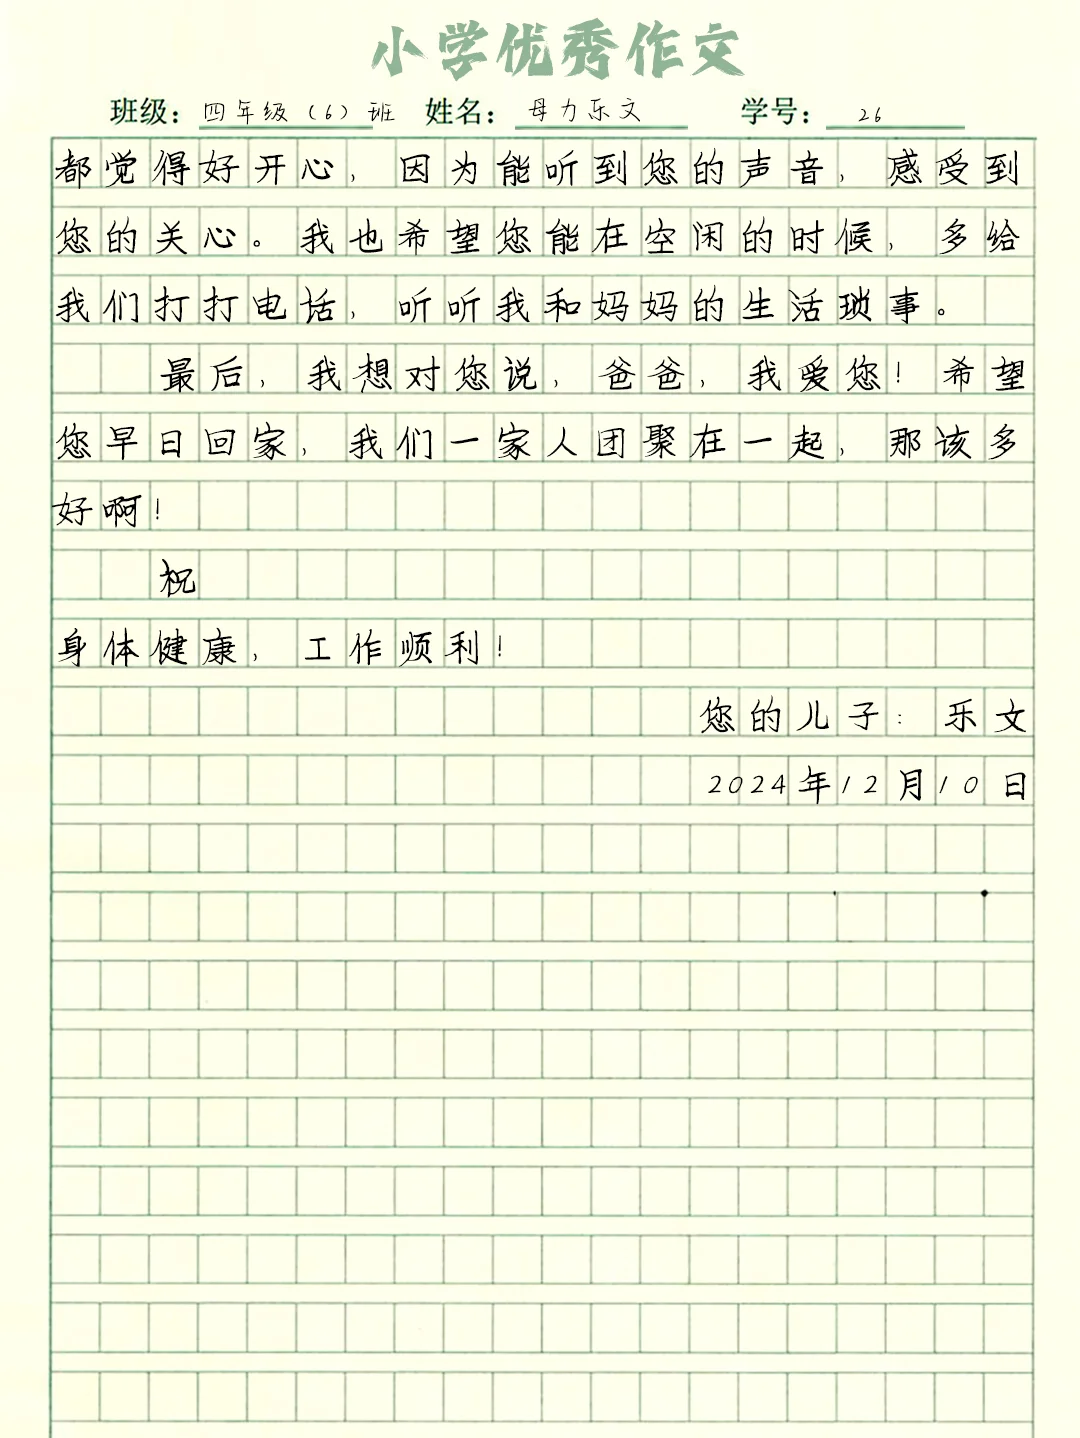 小学优秀作文
班级：四年级（6）班 姓名：母力乐文 学号：26
都觉得好开心，因为能听到您的声音，感受到
您的关心。我也希望您能在空闲的时候，多给
我们打打电话，听听我和妈妈的生活琐事。
最后，我想对您说，爸爸，我爱您！希望
您早日回家，我们一家人团聚在一起，那该多
好啊！
祝
身体健康，工作顺利！
您的儿子：乐文
2024年12月10日